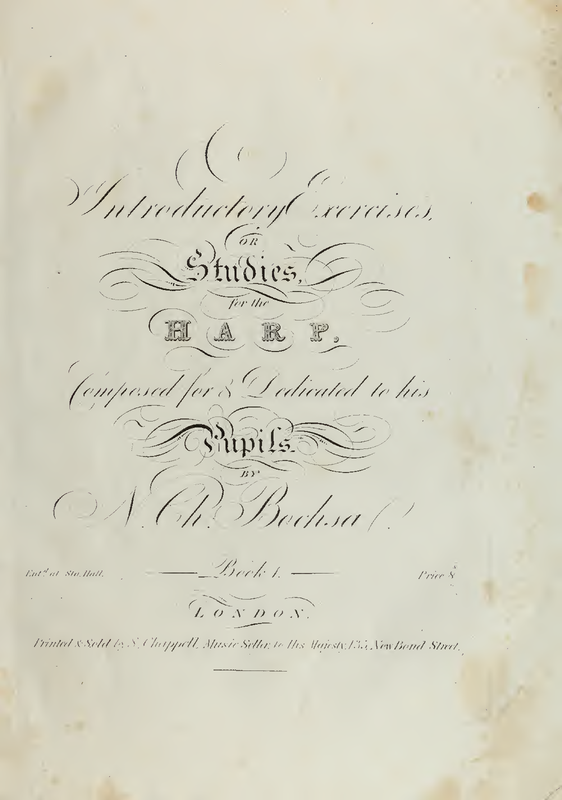 Introductory Exercises,
OR
Studies,
for the
HARP,
Composed for & Dedicated to his
Pupils.
BY
N. Ch. Bochsa
Ent.d at Sta. Hall.
Book 1.
Price 8
LONDON.
Printed & Sold by S. Chappell, Music Seller, to His Majesty, 135, New Bond Street.